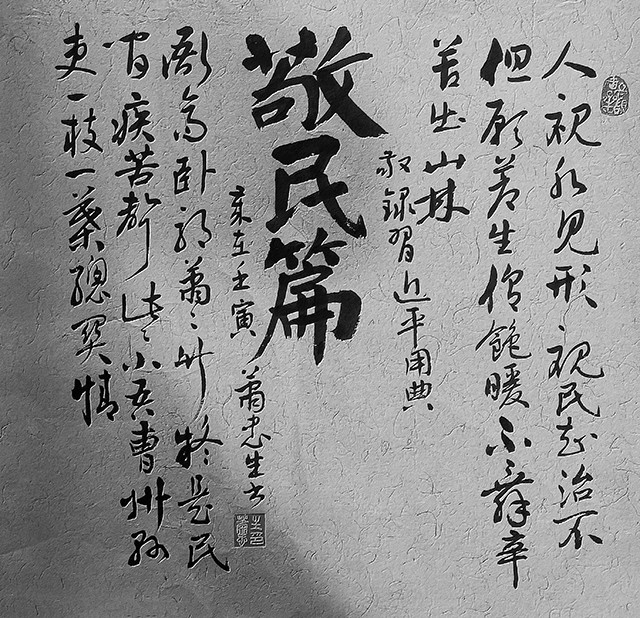 人视水见形视民知治不
但願苍生俱飽暖不辞辛
苦出山林
敬録習近平用典
敬民篇
岁在壬寅 蕭忠生书
衙斋卧听萧〻竹疑是民
间疾苦声些〻小吾曹州县
吏一枝一葉總関情